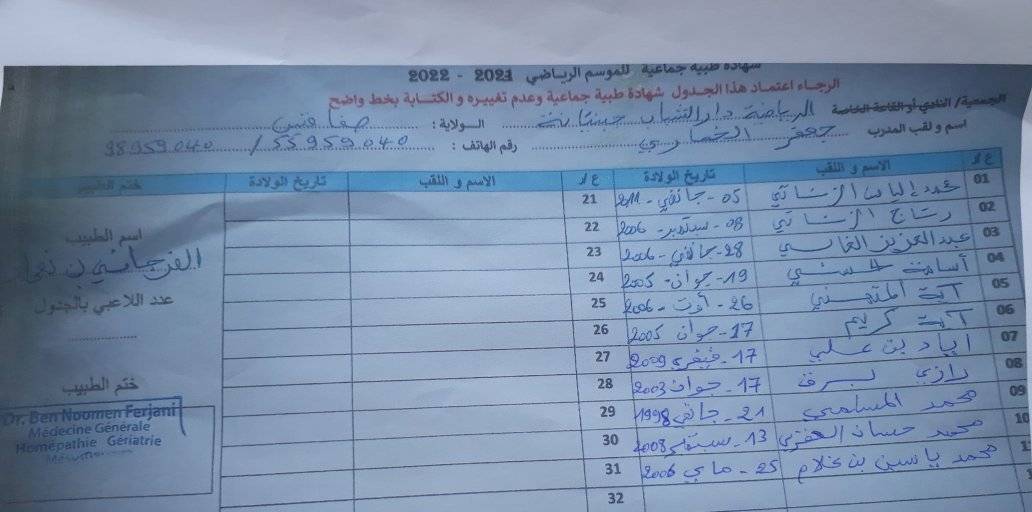 شهادة طبية جماعية للموسم الرياضي 2021 - 2022
الرجاء اعتماد هذا الجدول شهادة طبية جماعية وعدم تغييره و الكتابة بخط واضح
الجمعية/ النادي أو القاعة الخاصة الرياضة دار الشباب جبنيانة الولاية : صفاقس
اسم و لقب المدرب جعفر رقم الهاتف : 55959040 / 98959040
ع/ر الاسم و اللقب تاريخ الولادة ع/ر الاسم و اللقب تاريخ الولادة ختم الطبيب
01 05 - جانفي - 2011 21
02 08 - سبتمبر - 2006 22
03 عبد العزيز 28 - جانفي - 2006 23
04 أسامة 19 - جوان - 2005 24
05 آية 26 - أوت - 2006 25
06 آية كريم 17 - جوان 2005 26
07 اياد بن علي 17 - فيفري 2009 27
08 رازي 17 - جوان 2003 28
09 محمد المسلمي 21 - جانفي 1998 29
10 محمد حسان 13 - سبتمبر 2008 30
محمد ياسين بن غلام 25 - ماي 2006 31
32
اسم الطبيب
الفرجاني بن
عدد اللاعبي بالجدول
ختم الطبيب
Dr. Ben Noomen Ferjani
Médecine Générale
Homépathie Gériatrie